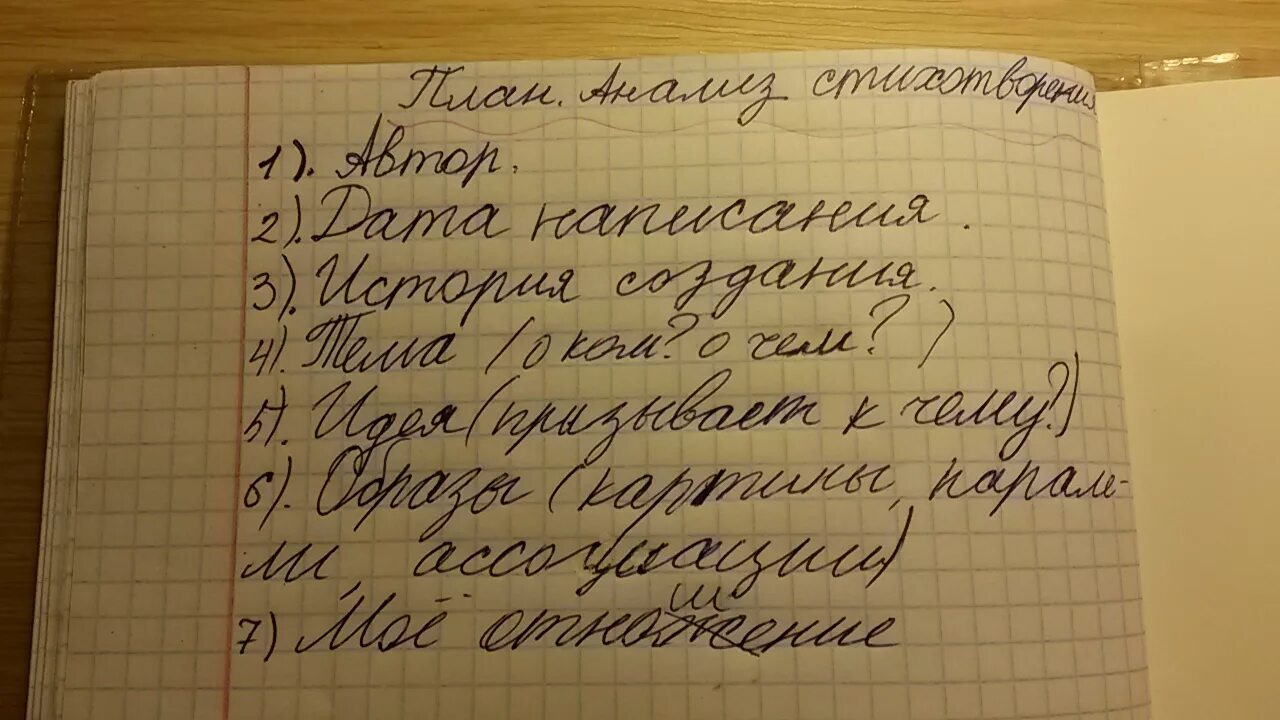 План. Анализ стихотворения
1). Автор.
2). Дата написания.
3). История создания.
4). Тема (о ком? о чем?)
5). Идея (призывает к чему?)
6). Образы (картины, парале-
ли, ассоциации)
7) Моё отношение